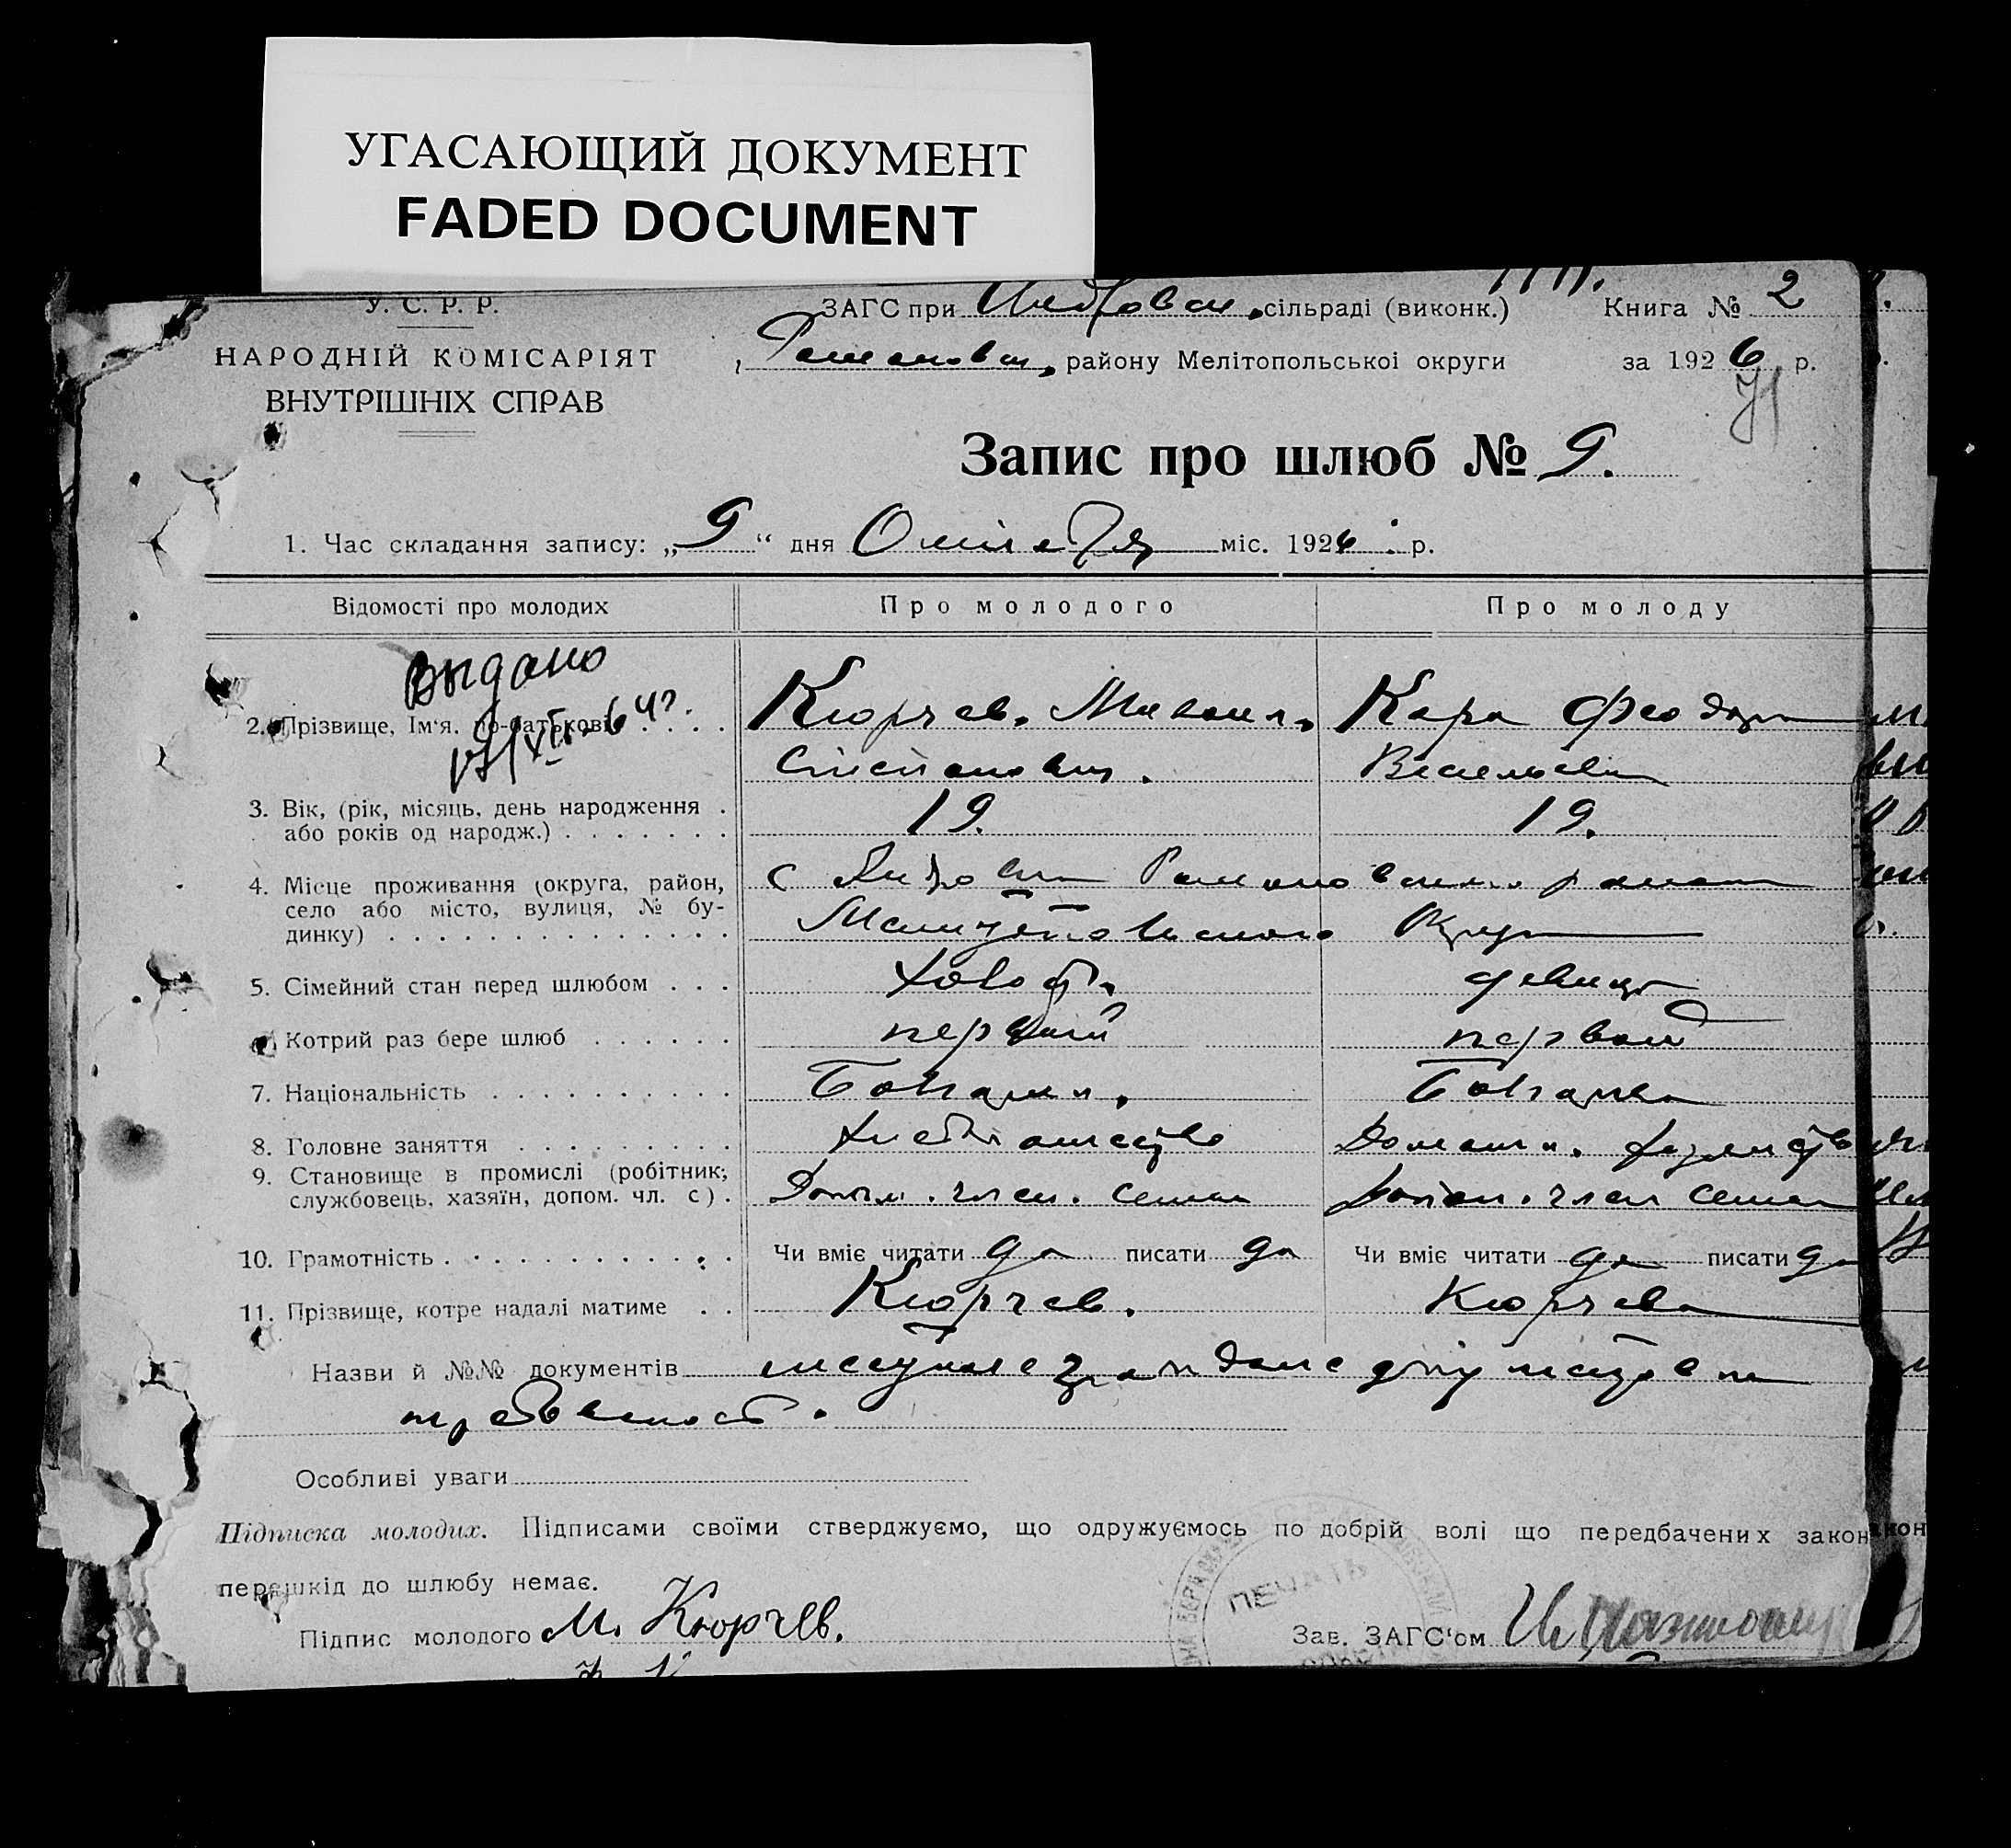 УГАСАЮЩИЙ ДОКУМЕНТ
FADED DOCUMENT
У. С. Р. Р.
НАРОДНІЙ КОМІСАРІЯТ
ВНУТРІШНІХ СПРАВ
ЗАГС при сільраді (виконк.) Книга № 2
Романовск. району Мелітопольської округи за 1926 р.
71
Запис про шлюб № 9.
1. Час складання запису: „9“ дня Октября міс. 1926 р.
Відомості про молодих Про молодого Про молоду
Выдано
2. Прізвище, Ім'я. по-батькові Кюрчев. Михаил. Кара Феодора
Степанович. Васильевна
3. Вік, (рік, місяць, день народження
або років од народж.) 19. 19.
4. Місце проживання (округа, район,
село або місто, вулиця, № бу-
динку)
с Романовского района
Мелитопольского Округа
5. Сімейний стан перед шлюбом холост. девица
Котрий раз бере шлюб первый первый
7. Національність Болгарин. Болгарка
8. Головне заняття хлебопашество Домашн. хозяйство
9. Становище в промислі (робітник,
службовець, хазяїн, допом. чл. с). Допом. член. семьи Допом. член семьи
10. Грамотність Чи вміє читати да писати да Чи вміє читати да писати да
11. Прізвище, котре надалі матиме Кюрчев. Кюрчева
Назви й №№ документів
Особливі уваги
Підписка молодих. Підписами своїми стверджуємо, що одружуємось по добрій волі що передбачених закон
перешкід до шлюбу немає.
ПЕЧАТЬ
Підпис молодого М. Кюрчев. Зав. ЗАГС'ом